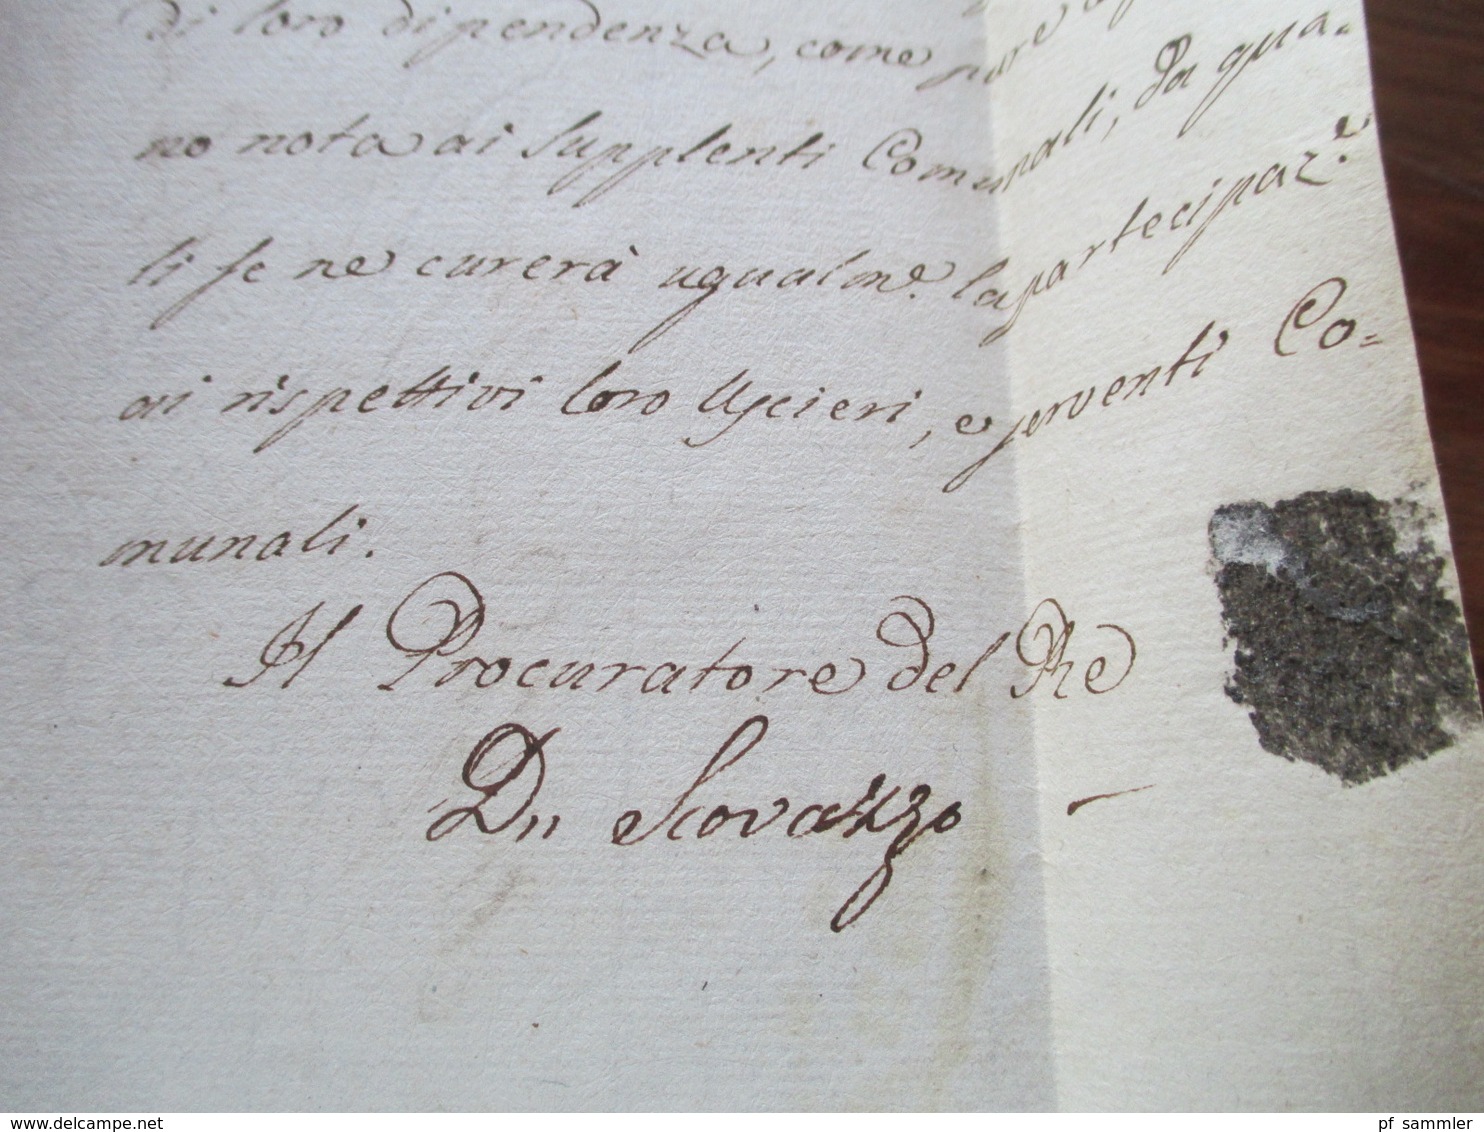 di loro dipendenza, come pure
no nota ai Supplenti Comunali, da qua=
li se ne curerà ugualme. la partecipaz.e
ai rispettivi loro Uscieri, e serventi Co=
munali.
Il Procuratore del Re
Dn Scovazzo
pf sammler
www.delcampe.net